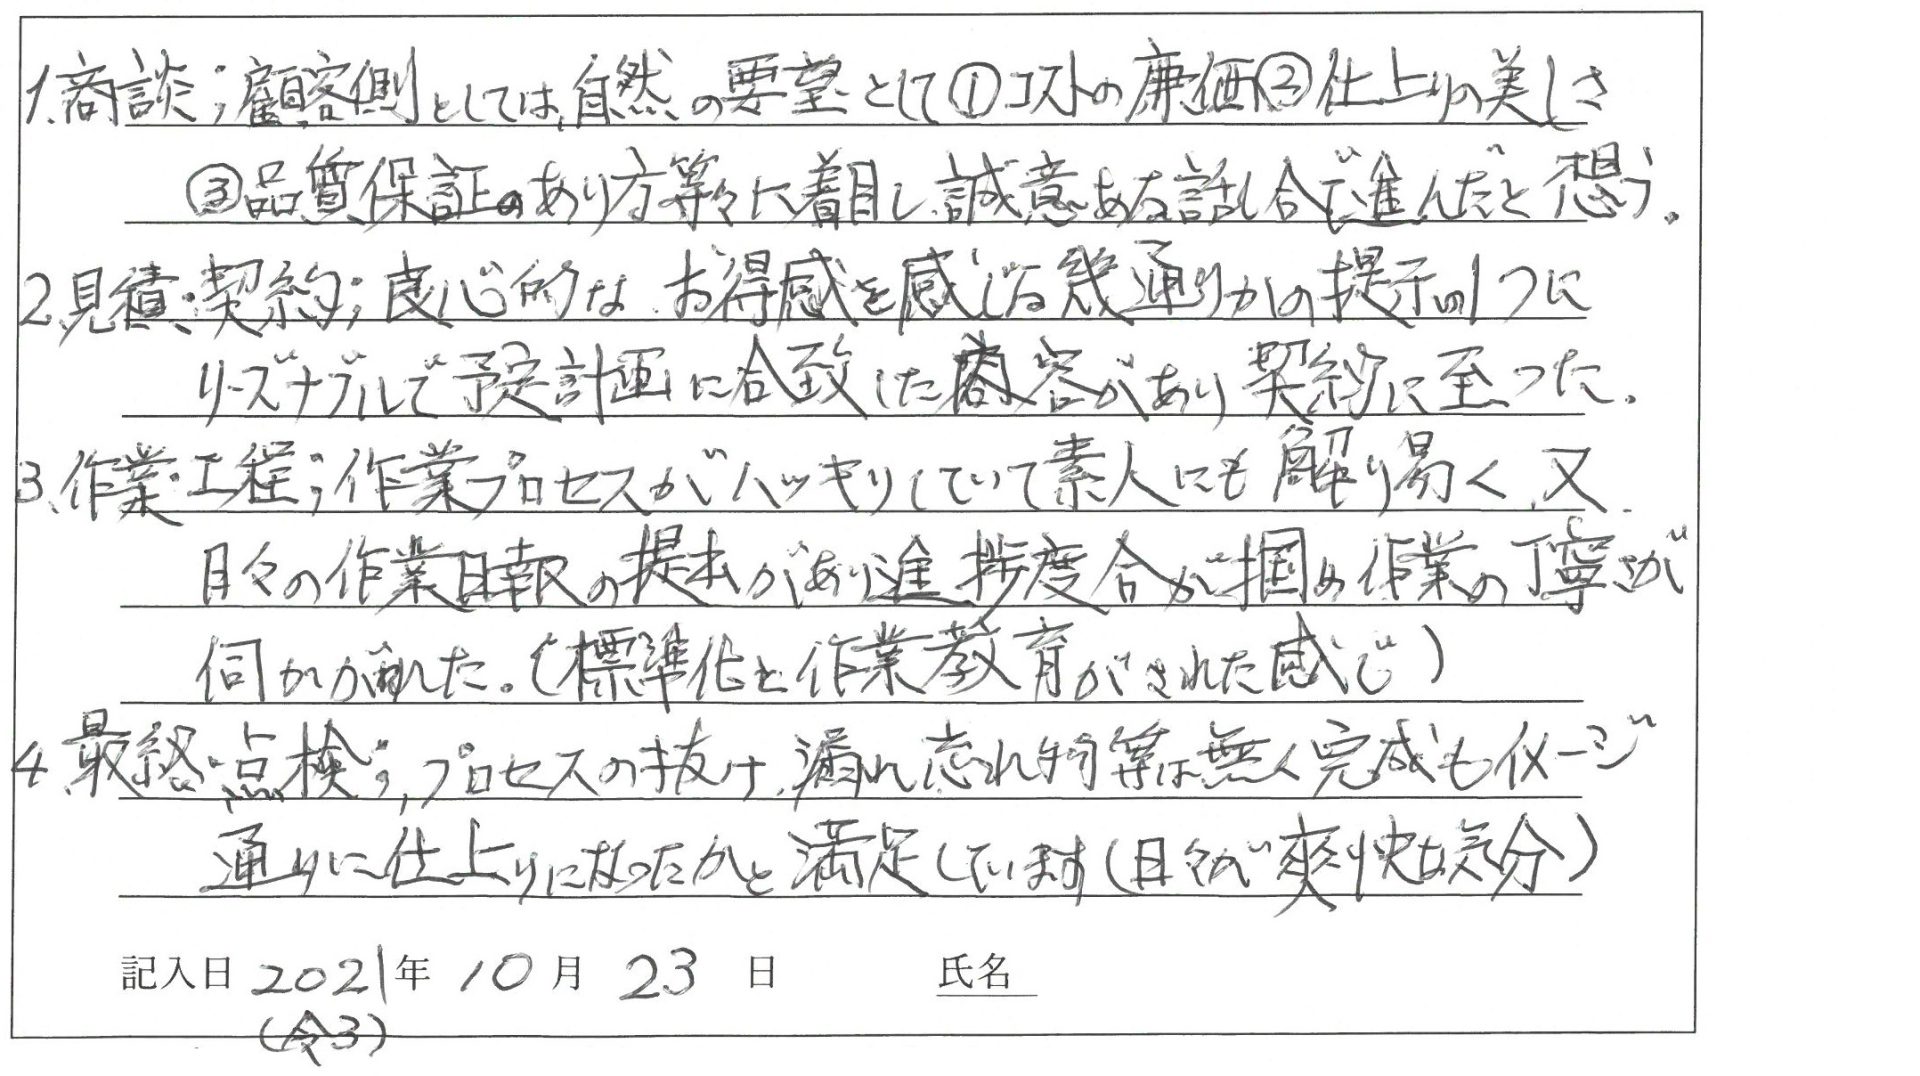 1.商談;顧客側としては、自然の要望として①コストの廉価②仕上りの美しさ
③品質保証のあり方等々に着目し、誠意ある話し合で進んだと想う。
2.見積・契約;良心的な、お得感を感じる幾通りかの提示の1つに
リーズナブルで予定計画に合致した内容があり契約に至った。
3.作業・工程;作業プロセスがハッキリしていて素人にも解り易く、又、
日々の作業日報の提出があり進捗度合が掴め作業の丁寧さが
伺かがわれた。(標準化と作業教育がされた感じ)
4.最終・点検;プロセスの抜け、漏れ忘れ物等は無く完成もイメージ
通りに仕上りになったかと満足しています(日々が爽快な気分)
記入日 2021年 10月 23日 氏名
(令3)